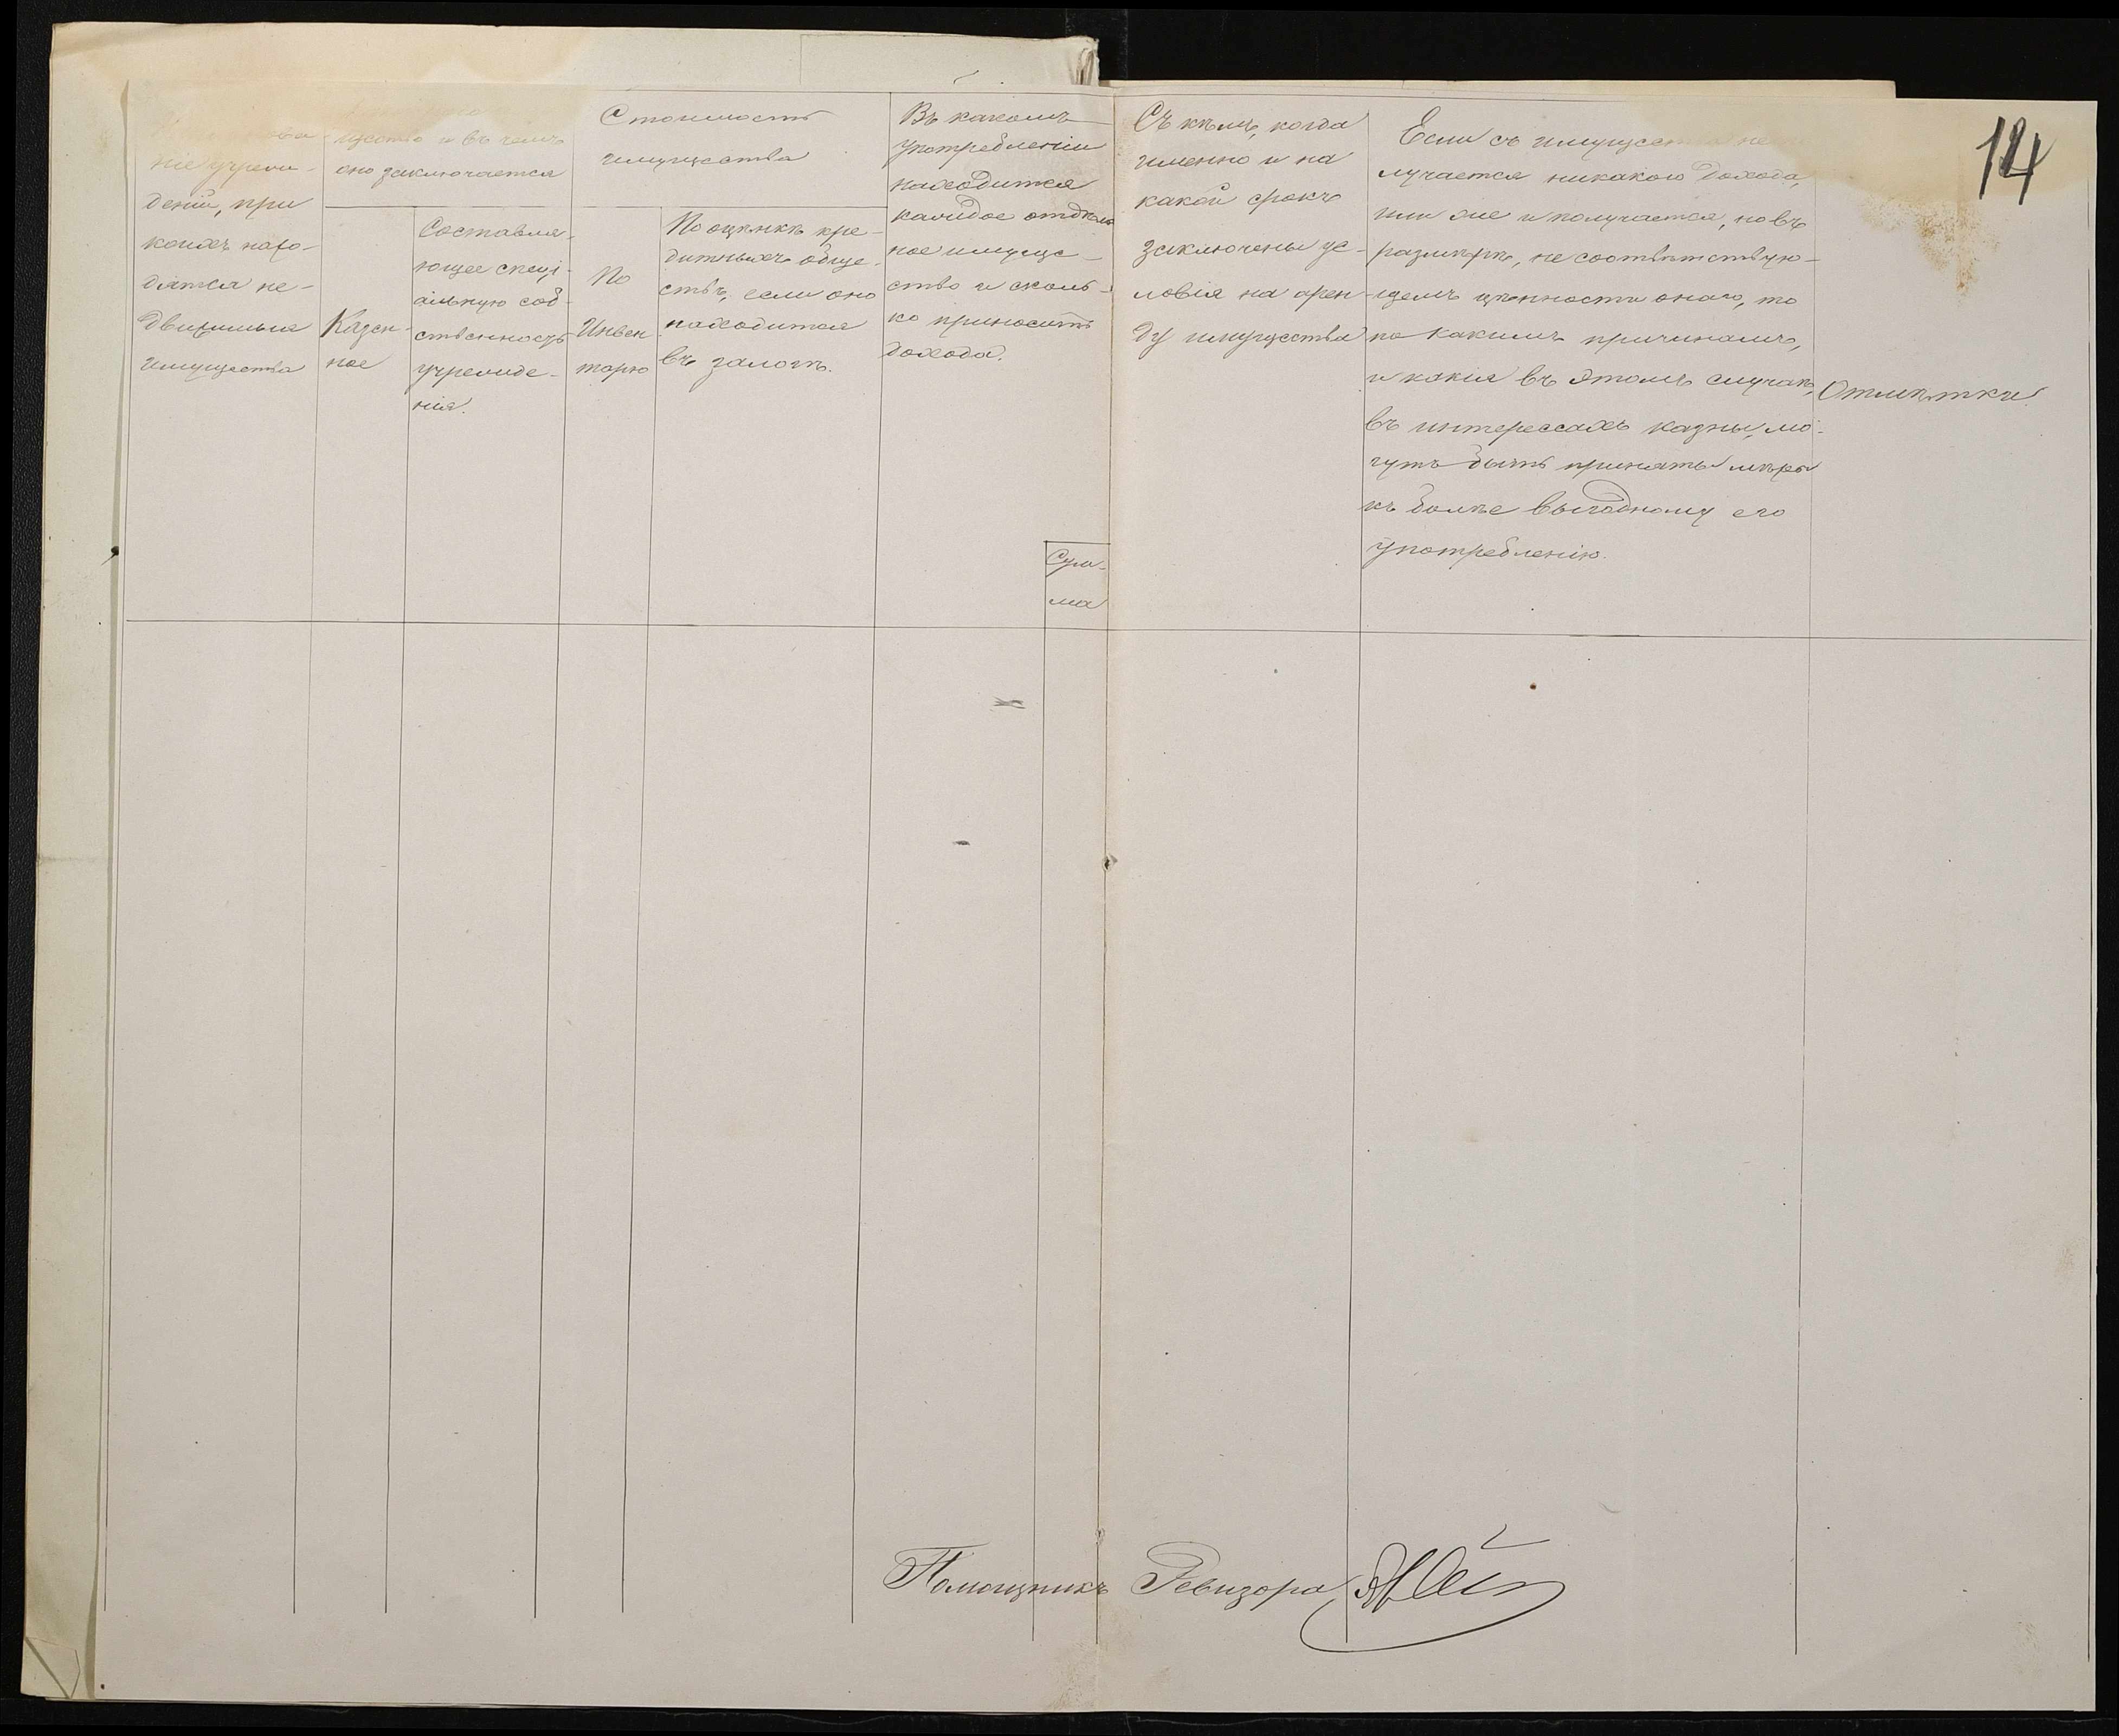 14
ніе учреж-
деній, при
коихъ нахо-
дятся не-
движимыя
имущества
щество и въ чемъ
оно заключается
Казен-
ное
Составля-
ющее спеці-
альную соб-
ственность
учрежде-
нія.
Стоимость
имущества
По
Инвен
тарю
По оцѣнкѣ кре-
дитныхъ обще-
ствъ, если оно
находится
въ залогѣ.
Въ какомъ
употребленіи
находится
каждое отдѣль
ное имуще-
ство и сколь-
ко приноситъ
дохода.
Сум-
ма
Съ кѣмъ, когда
именно и на
какой срокъ
заключены ус-
ловія на арен-
ду имущества
Если съ имущества не
лучается никакого дохода,
или же и получается, но въ
размѣрѣ, не соотвѣтствую-
щемъ цѣнности онаго, то
по какимъ причинамъ,
и какія въ этомъ случаѣ,
въ интерессахъ казны, мо-
гутъ быть приняты мѣры
къ болѣе выгодному его
употребленію.
Отмѣтки.
Помощникъ Ревизора